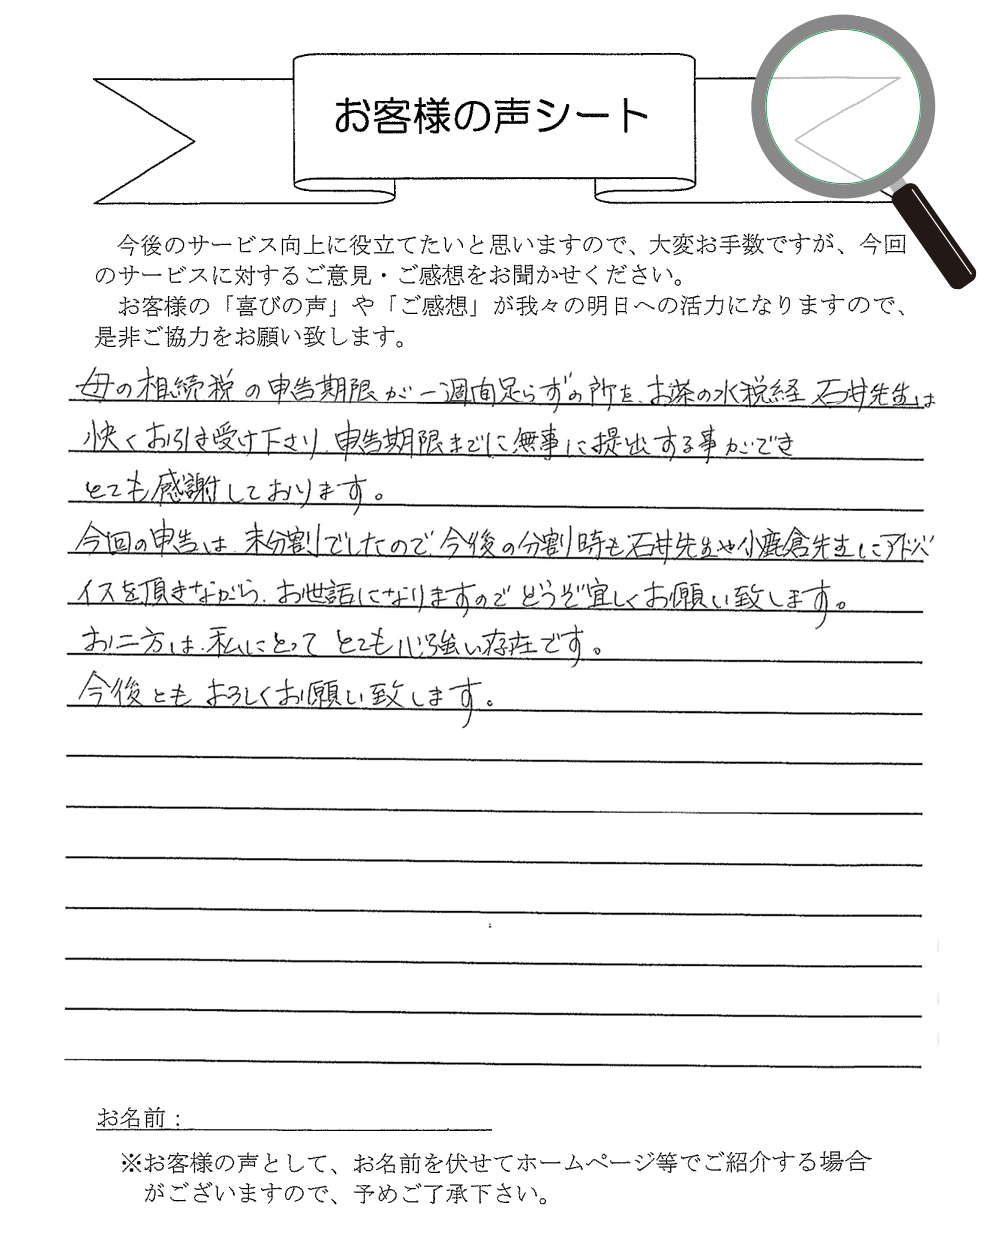 お客様の声シート
今後のサービス向上に役立てたいと思いますので、大変お手数ですが、今回
のサービスに対するご意見・ご感想をお聞かせください。
お客様の「喜びの声」や「ご感想」が我々の明日への活力になりますので、
是非ご協力をお願い致します。
母の相続税の申告期限が一週間足らずの所を、お茶の水税経 石井先生は
快くお引き受け下さり、申告期限までに無事に提出する事ができ
とても感謝しております。
今回の申告は、未分割でしたので、今後の分割時も石井先生や小鹿倉先生にアドバ
イスを頂きながら、お世話になりますのでどうぞ宜しくお願い致します。
お二方は、私にとって とても心強い存在です。
今後とも よろしくお願い致します。
お名前：
※お客様の声として、お名前を伏せてホームページ等でご紹介する場合
がございますので、予めご了承下さい。